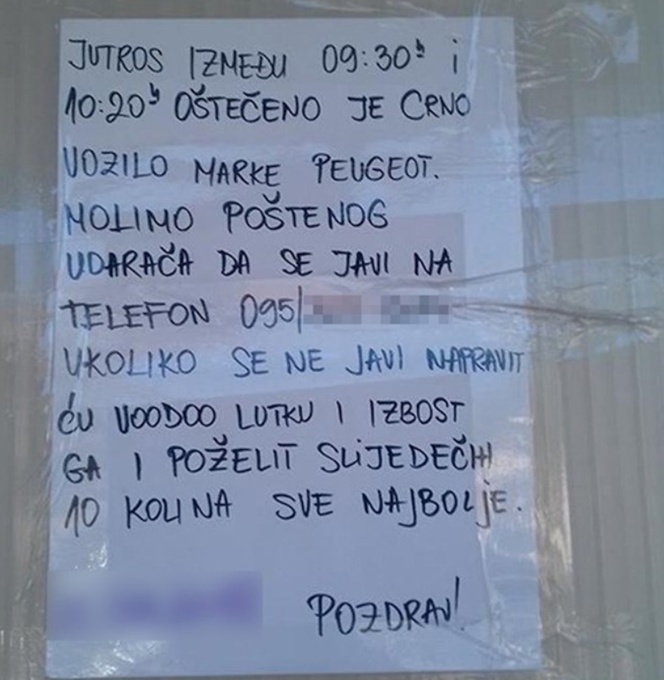 JUTROS IZMEĐU 09:30ʰ i
10:20ʰ OŠTEČENO JE CRNO
VOZILO MARKE PEUGEOT.
MOLIMO POŠTENOG
UDARAČA DA SE JAVI NA
TELEFON 095/
UKOLIKO SE NE JAVI NAPRAVIT
ĆU VOODOO LUTKU I IZBOST
GA I POŽELIT SLIJEDEČIH
10 KOLINA SVE NAJBOLJE.
POZDRAV!